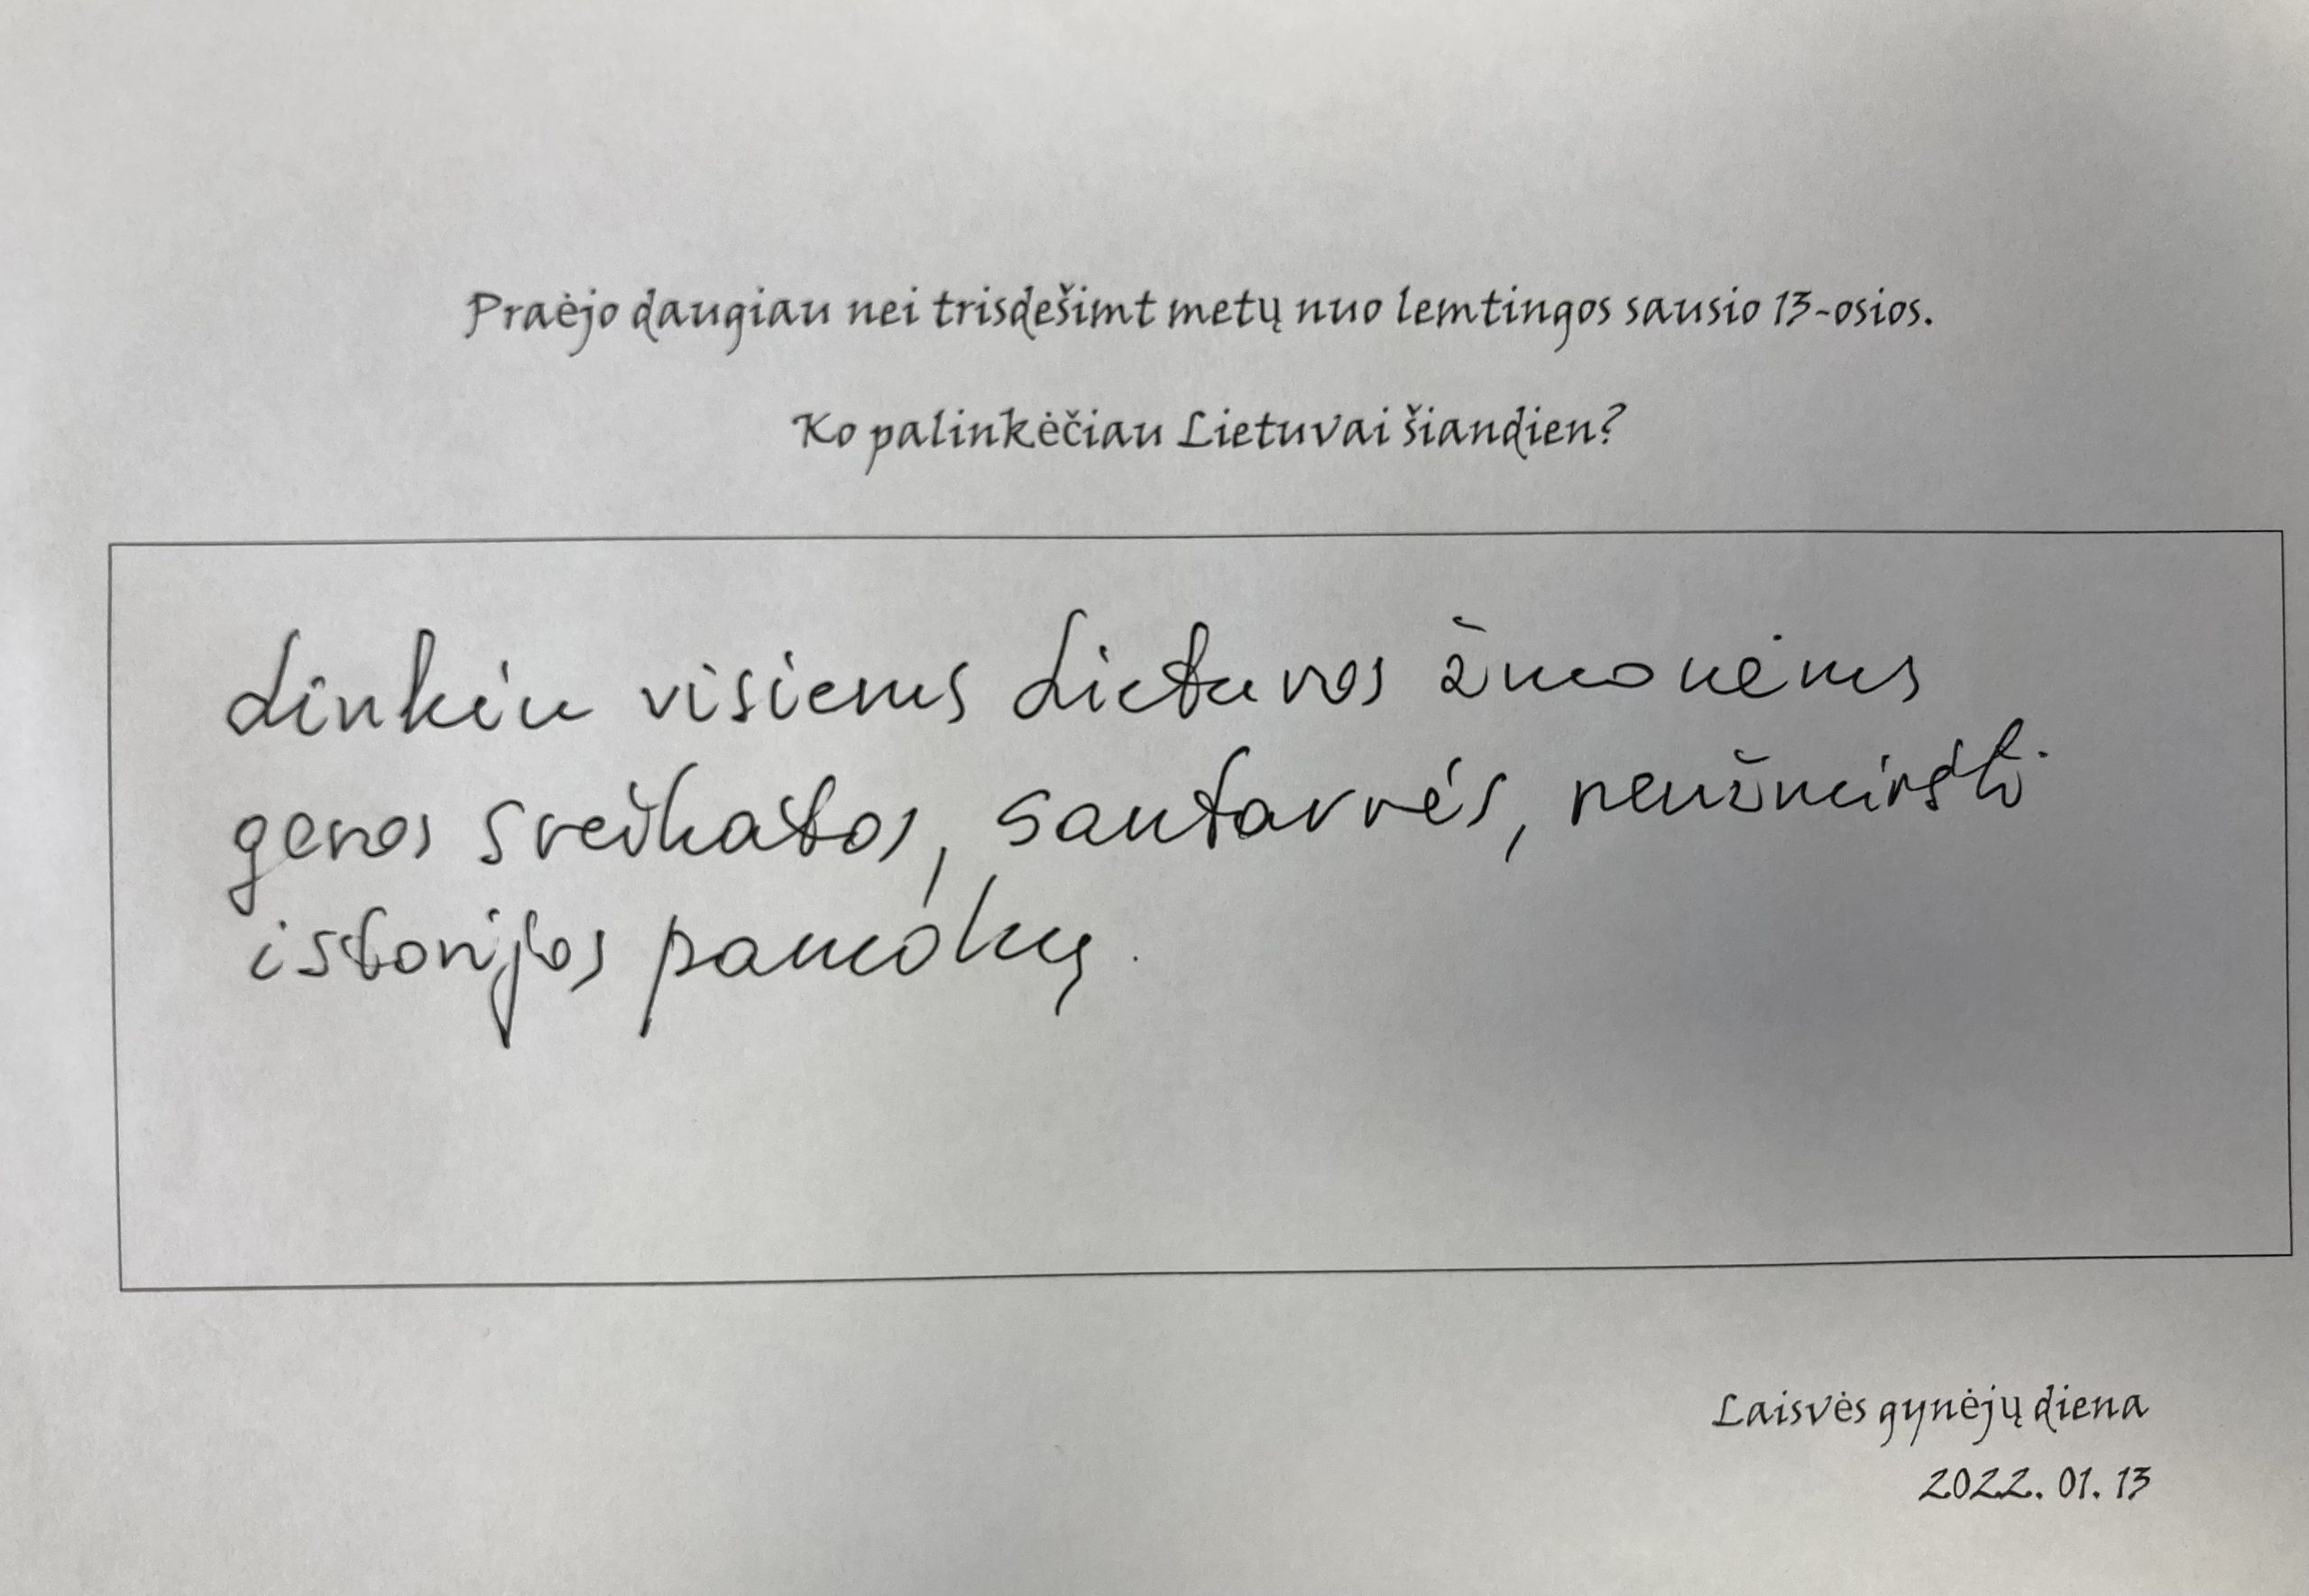 Praėjo daugiau nei trisdešimt metų nuo lemtingos sausio 13-osios.
Ko palinkėčiau Lietuvai šiandien?
Linkiu visiems Lietuvos žmonėms
geros sveikatos, santarvės, neužmiršti
istorijos pamokų.
Laisvės gynėjų diena
2022. 01. 13